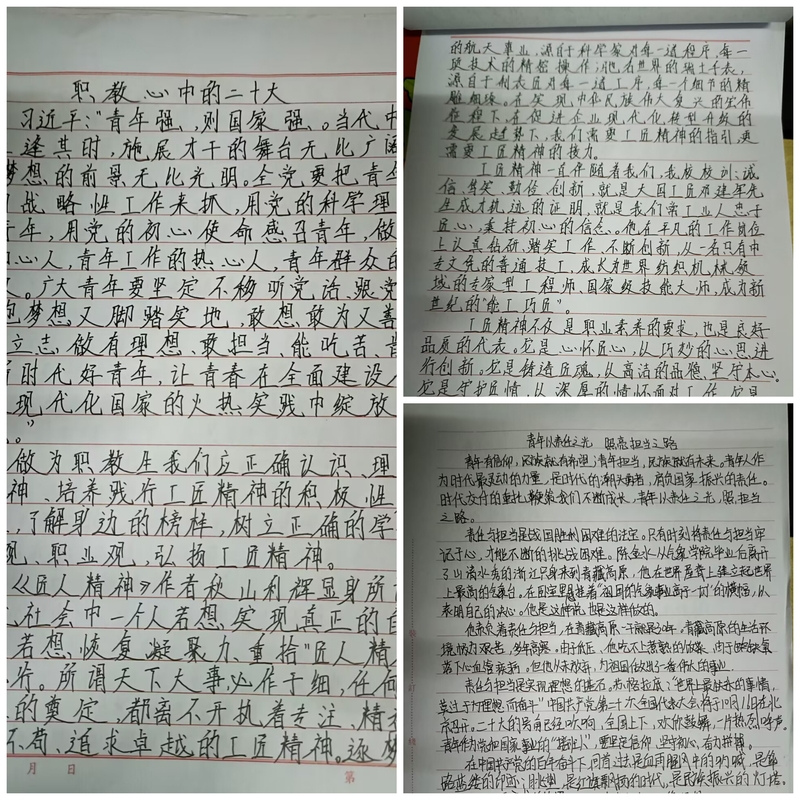 职教心中的二十大
习近平："青年强,则国家强、。当代中
逢其时,施展才干的舞台无比广阔
梦想的前景无比光明。全党要把青年
战略性工作来抓,用党的科学理
年,用党的初心使命感召青年,做
心人,青年工作的热心人,青年群众的
。广大青年要坚定不移听党话、跟党
抱梦想又脚踏实地,敢想敢为又善
立志做有理想、敢担当、能吃苦、肯
新时代好青年,让青春在全面建设
现代化国家的火热实践中绽放
。"
做为职教生我们立正确认识、理
神、培养践行工匠精神的积极性
,了解身边的榜样,树立正确的学
观、职业观,弘扬工匠精神。
《匠人精神》作者秋山利辉显身所
社会中一个人若想实现真正的自
若想恢复凝聚力,重拾"匠人精
行。所谓天下大事,必作于细,任何
的奠定,都离不开执着专注,精
不苟、追求卓越的工匠精神。逐梦
月 日 第
的航天事业,源自于科学家对每一道程序,每一
项技术的精密操作;驰名世界的瑞士手表,
源自于制表匠对每一道工序,每一个细节的精
雕细琢。在实现中华民族伟大复兴的宏伟
征程下,在促进企业现代化转型升级的
发展趋势下,我们需要工匠精神的指引,更
需要工匠精神的接力。
工匠精神一直伴随着我们,我校校训：诚
信、笃实、创新,就是大国工匠邓建军先
生成才轨迹的证明,就是我们常工业人忠于
匠心,秉持初心的信念。他在平凡的工作岗位
上认真钻研,踏实工作,不断创新,从一名只有中
专文凭的普通技工,成长为世界纺织机械领
域的专家型工程师、国家级技能大师,成为新
世纪的"能工巧匠"。
工匠精神不仅是职业素养的要求,也是良好
品质的代表。它是心怀匠心,从巧妙的心思,进
行创新。它是铸造匠魂,从高洁的品德,坚守本心。
它是守护匠情,从深厚的情怀面对工作,它是
青年以责任之光 照亮担当之路
青年有信仰,民族就有希望;青年担当,民族就有未来。青年人作
为时代最灵动的力量,是时代的潮头勇者,肩负国家振兴的责任。
时代交付的重托,鞭策我们不断成长,青年以责任之光,照担当
之路。
责任与担当是战国胜利困难的法宝。只有时刻将责任与担当牢
记于心,才能不断的挑战困难。陈金水从气象学院毕业后离开
了山清水秀的浙江只身来到青藏高原,他在世界屋脊上建立起世界
上最高的气象台,在国宝里悬挂着"祖国的气象事业高于一切"的横幅,从
表明自己的决心。他是这样说,也是这样做的。
他肩负着责任与担当,在青藏高原一干就是20年。青藏高原的生活环
境极为艰苦,多年高寒。由于低压,他吃不上蒸熟的饭菜,由于缺缺氧
落下心血管疾病。但他从未放弃,为祖国做出了一番伟大的事业。
责任与担当是实现理想的基石。苏格拉底："世界上最快乐的事情,
莫过于为理想而奋斗"中国共产党第二十次全国代表大会将于10月1日在北
京召开。二十大的号角已经吹响,全国上下,欢欣鼓舞,一片热烈响声。
青年作为党和国家事业的"接班人",要坚定信仰,坚守初心,奋力拼搏。
在中国共产党的百年奋斗下,回首过去,是血雨腥风中的呐喊,是筚
路蓝缕的印迹;是红旗飘扬的时代,是民族振兴的灯塔。